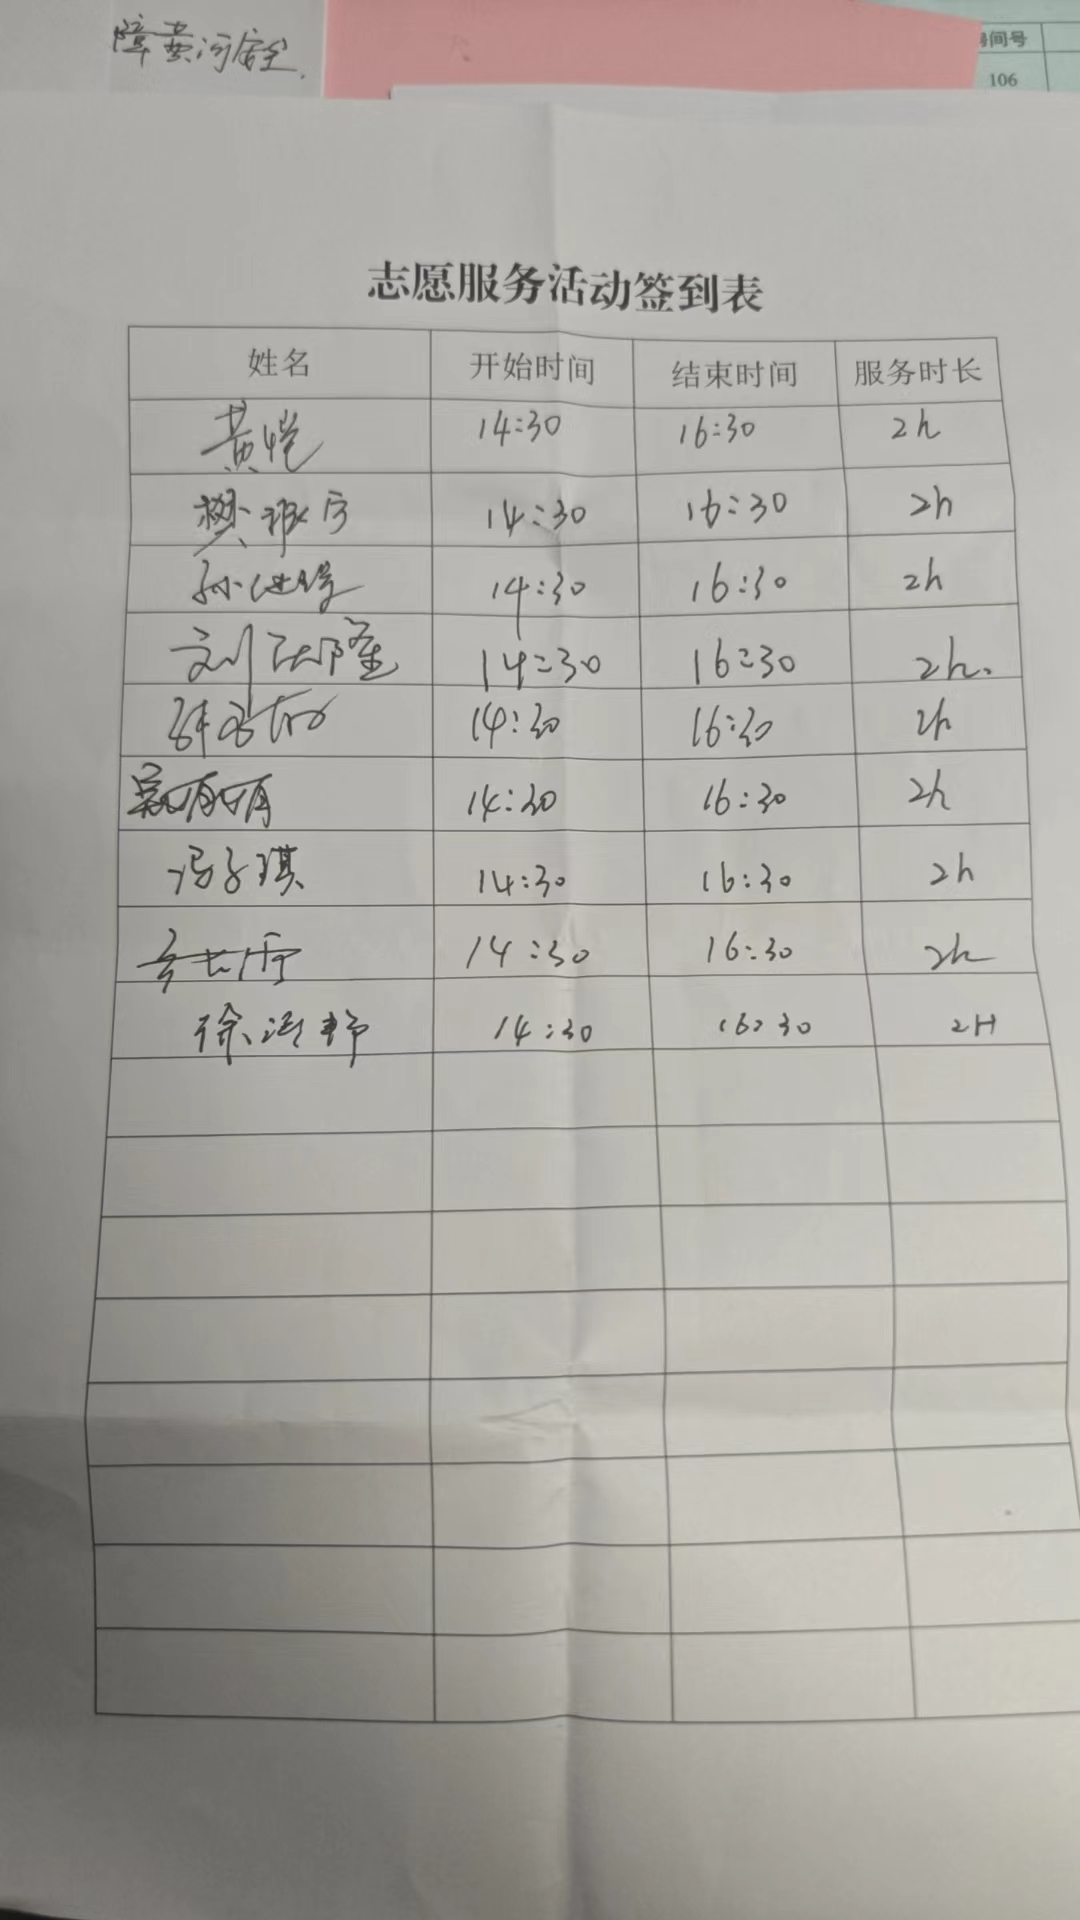 障黄河安全.
房间号
106
志愿服务活动签到表
姓名 开始时间 结束时间 服务时长
黄恺 14:30 16:30 2h
樊 14:30 16:30 2h
孙 14:30 16:30 2h
刘 隆 14:30 16:30 2h.
14:30 16:30 2h
14:30 16:30 2h
冯子琪 14:30 16:30 2h
14:30 16:30 2h
徐 14:30 16:30 2H